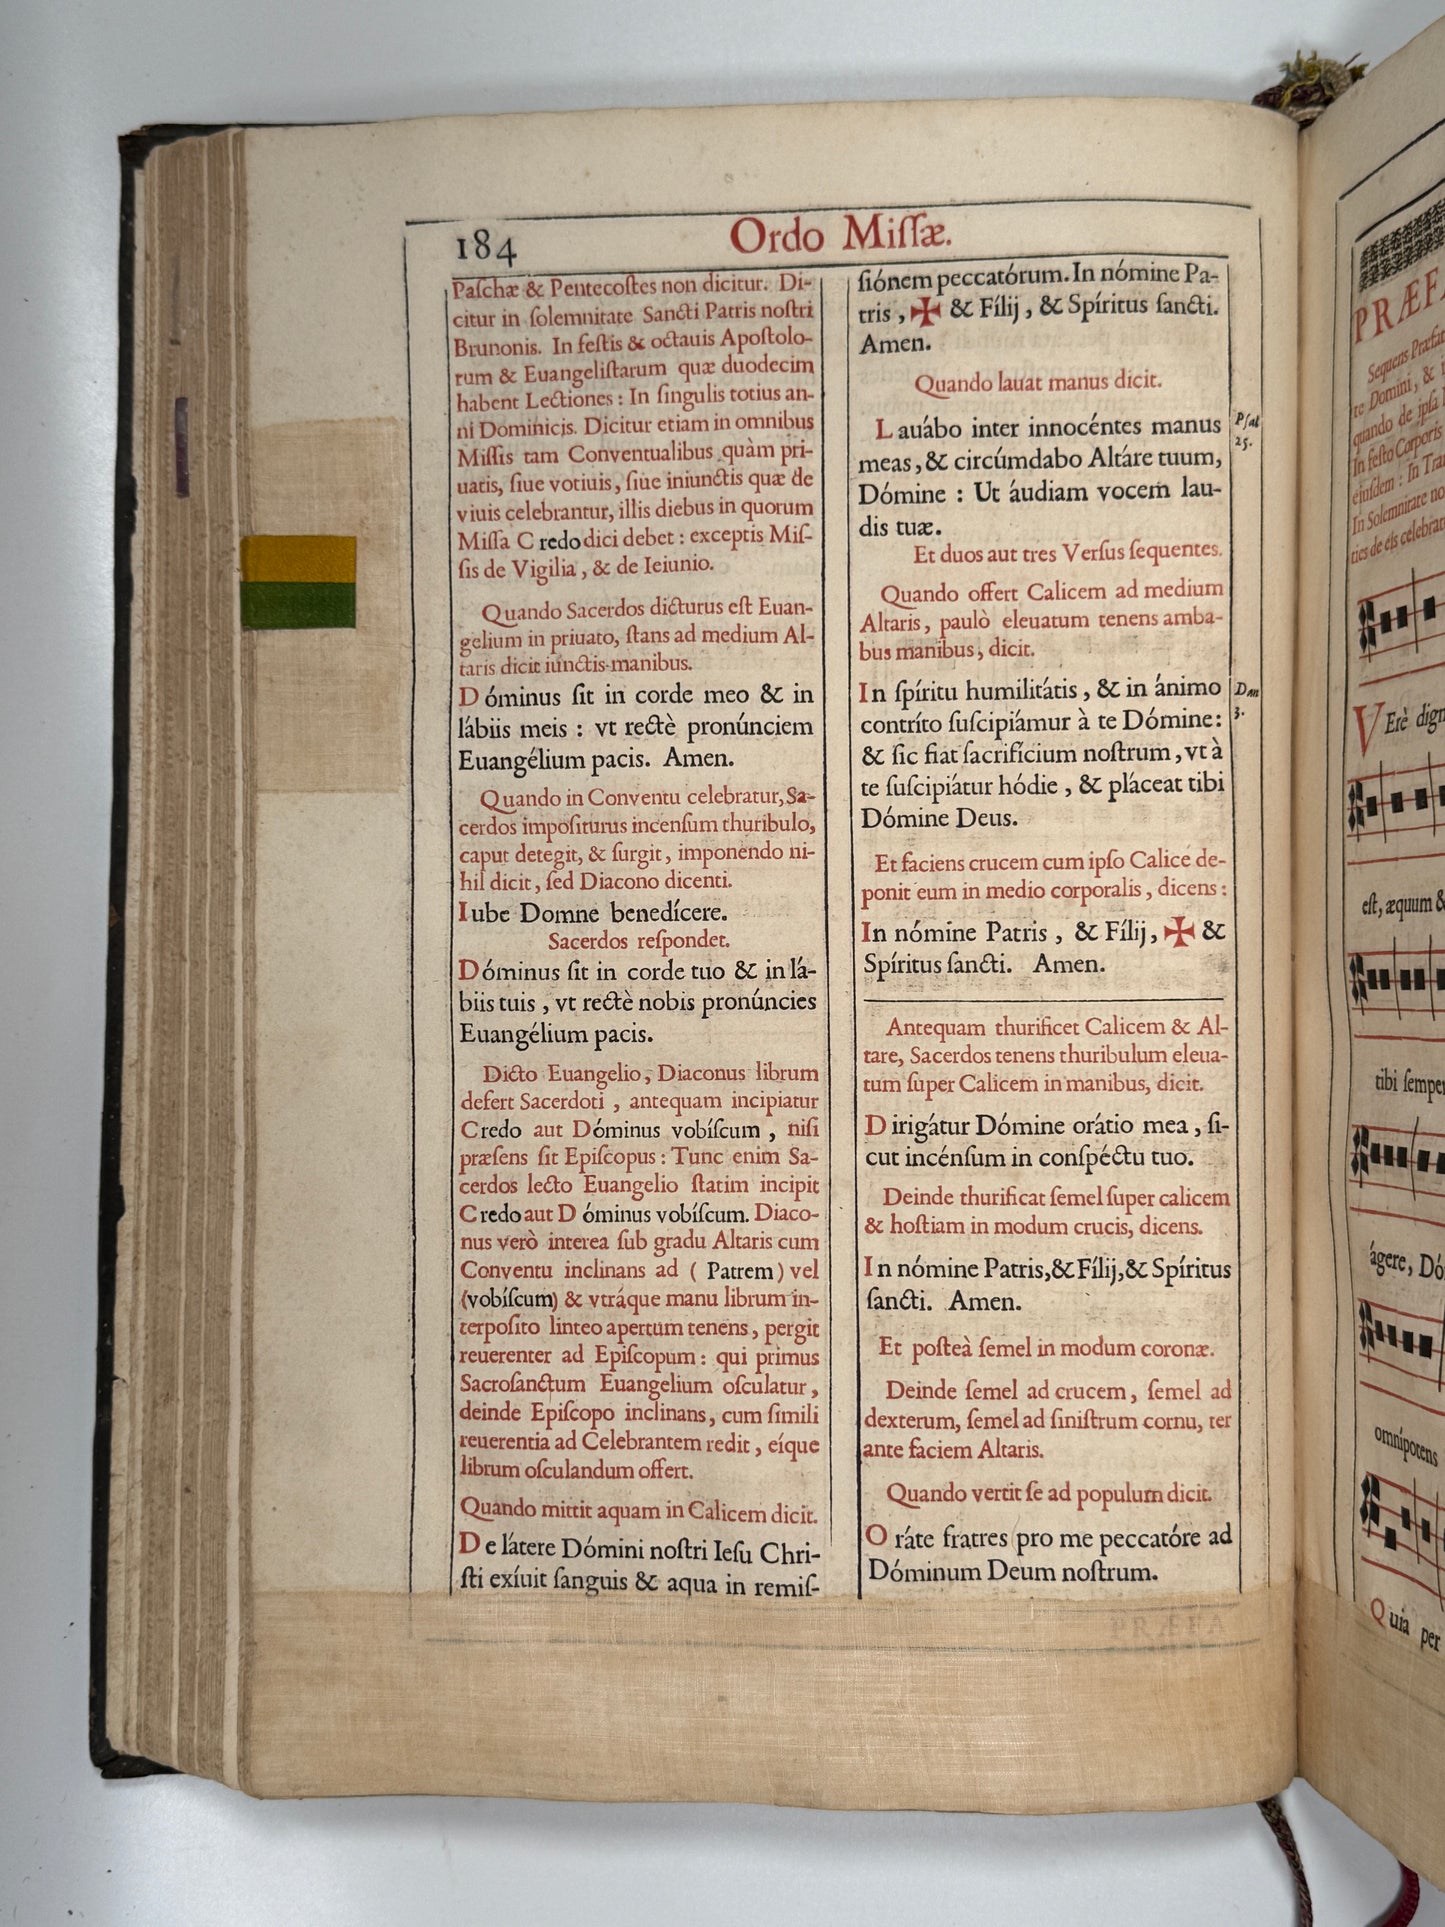 184
Ordo Miſſæ.
Paſchæ & Pentecoſtes non dicitur. Di-
citur in ſolemnitate Sancti Patris noſtri
Brunonis. In feſtis & octauis Apoſtolo-
rum & Euangeliſtarum quæ duodecim
habent Lectiones : In ſingulis totius an-
ni Dominicis. Dicitur etiam in omnibus
Miſſis tam Conventualibus quàm pri-
uatis, ſiue votiuis, ſiue iniunctis quæ de
viuis celebrantur, illis diebus in quorum
Miſſa Credo dici debet : exceptis Miſ-
ſis de Vigilia, & de Ieiunio.
Quando Sacerdos dicturus eſt Euan-
gelium in priuato, ſtans ad medium Al-
taris dicit iunctis manibus.
Dóminus ſit in corde meo & in
lábiis meis : vt rectè pronúnciem
Euangélium pacis. Amen.
Quando in Conventu celebratur, Sa-
cerdos impoſiturus incenſum thuribulo,
caput detegit, & ſurgit, imponendo ni-
hil dicit, ſed Diacono dicenti.
Iube Domne benedícere.
Sacerdos reſpondet.
Dóminus ſit in corde tuo & in lá-
biis tuis, vt rectè nobis pronúncies
Euangélium pacis.
Dicto Euangelio, Diaconus librum
defert Sacerdoti, antequam incipiatur
Credo aut Dóminus vobíſcum, niſi
præſens ſit Epiſcopus : Tunc enim Sa-
cerdos lecto Euangelio ſtatim incipit
Credo aut Dóminus vobíſcum. Diaco-
nus verò interea ſub gradu Altaris cum
Conventu inclinans ad (Patrem) vel
(vobíſcum) & vtráque manu librum in-
terpoſito linteo apertum tenens, pergit
reuerenter ad Epiſcopum : qui primus
Sacroſanctum Euangelium oſculatur,
deinde Epiſcopo inclinans, cum ſimili
reuerentia ad Celebrantem redit, eíque
librum oſculandum offert.
Quando mittit aquam in Calicem dicit.
De látere Dómini noſtri Ieſu Chri-
ſti exíuit ſanguis & aqua in remiſ-
ſiónem peccatórum. In nómine Pa-
tris, ✠ & Fílij, & Spíritus ſancti.
Amen.
Quando lauat manus dicit.
Lauábo inter innocéntes manus
meas, & circúmdabo Altáre tuum,
Dómine : Ut áudiam vocem lau-
dis tuæ.
Pſal
25.
Et duos aut tres Verſus ſequentes.
Quando offert Calicem ad medium
Altaris, paulò eleuatum tenens amba-
bus manibus, dicit.
In ſpíritu humilitátis, & in ánimo
contríto ſuſcipiámur à te Dómine :
& ſic fiat ſacrifícium noſtrum, vt à
te ſuſcipiátur hódie, & pláceat tibi
Dómine Deus.
Dan
3.
Et faciens crucem cum ipſo Calice de-
ponit eum in medio corporalis, dicens :
In nómine Patris, & Fílij, ✠ &
Spíritus ſancti. Amen.
Antequam thurificet Calicem & Al-
tare, Sacerdos tenens thuribulum eleua-
tum ſuper Calicem in manibus, dicit.
Dirigátur Dómine orátio mea, ſi-
cut incénſum in conſpéctu tuo.
Deinde thurificat ſemel ſuper calicem
& hoſtiam in modum crucis, dicens.
In nómine Patris, & Fílij, & Spíritus
ſancti. Amen.
Et poſteà ſemel in modum coronæ.
Deinde ſemel ad crucem, ſemel ad
dexterum, ſemel ad ſiniſtrum cornu, ter
ante faciem Altaris.
Quando vertit ſe ad populum dicit.
Oráte fratres pro me peccatóre ad
Dóminum Deum noſtrum.
PRÆFA
PRÆFA
Sequens Præfat
te Domini, &
quando de ipſa
In feſto Corporis
ejuſdem : In Tran
In Solemnitate no
ties de eis celebrat
VErè dign
eſt, æquum &
tibi ſemper
ágere, Dó
omnípotens
Quia per